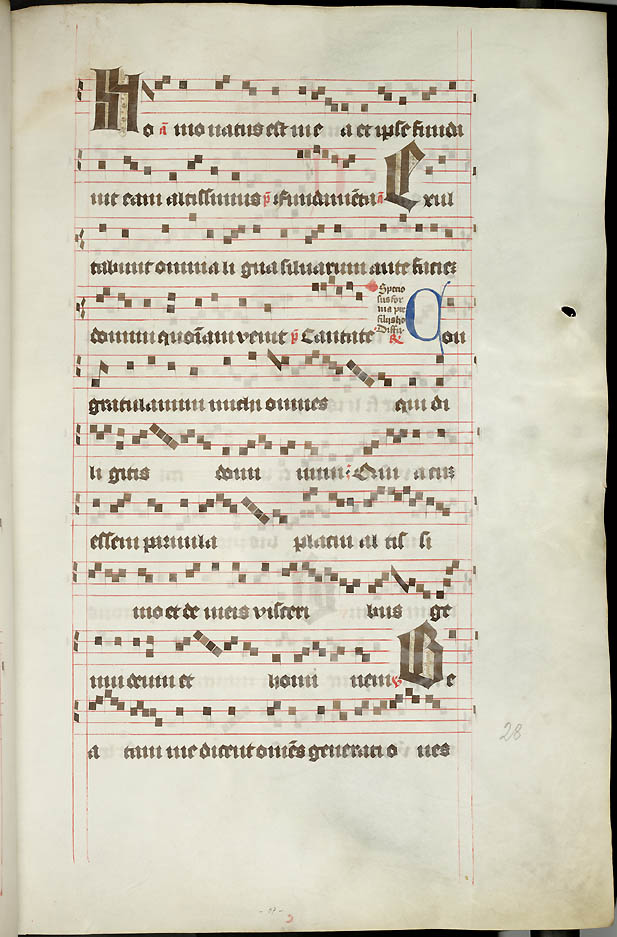 Ho a͞ mo natus est in e a et ipse funda
uit eam altissimus p̄ fundamēta a͞ Exul
tabunt omnia li gna siluarum ante faciez
domini quoniam uenit p̄ Cantate Con
Spetio
sus for
ma pre
filiis ho
Diffu
gratulamini michi omnes qui di
li gitis domi num Qui a cuz
essem paruula placui al tis si
mo et de meis visceri bus ge
nui deum et homi nem Be
a tam me dicent om̄es generati o nes
28